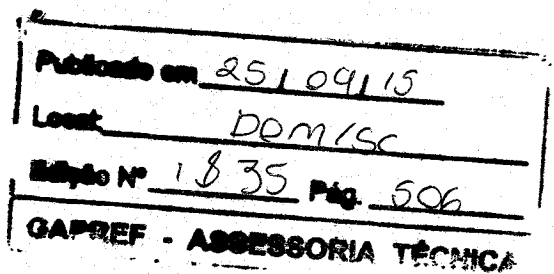 Publicado em 25/09/15
Local: DOM/SC
Edição Nº 1835 Pág. 506
GAPREF - ASSESSORIA TÉCNICA